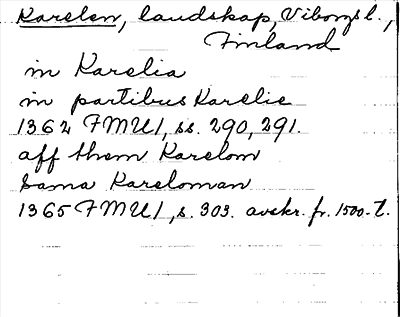 Karelen, landskap, Viborgs l.,
Finland
in Karelia
in partibus Karelie
1362 FMU1, ss. 290, 291.
aff them Karelom
sama Kareloman
1365 FMU1, s. 303. avskr. fr. 1500-t.